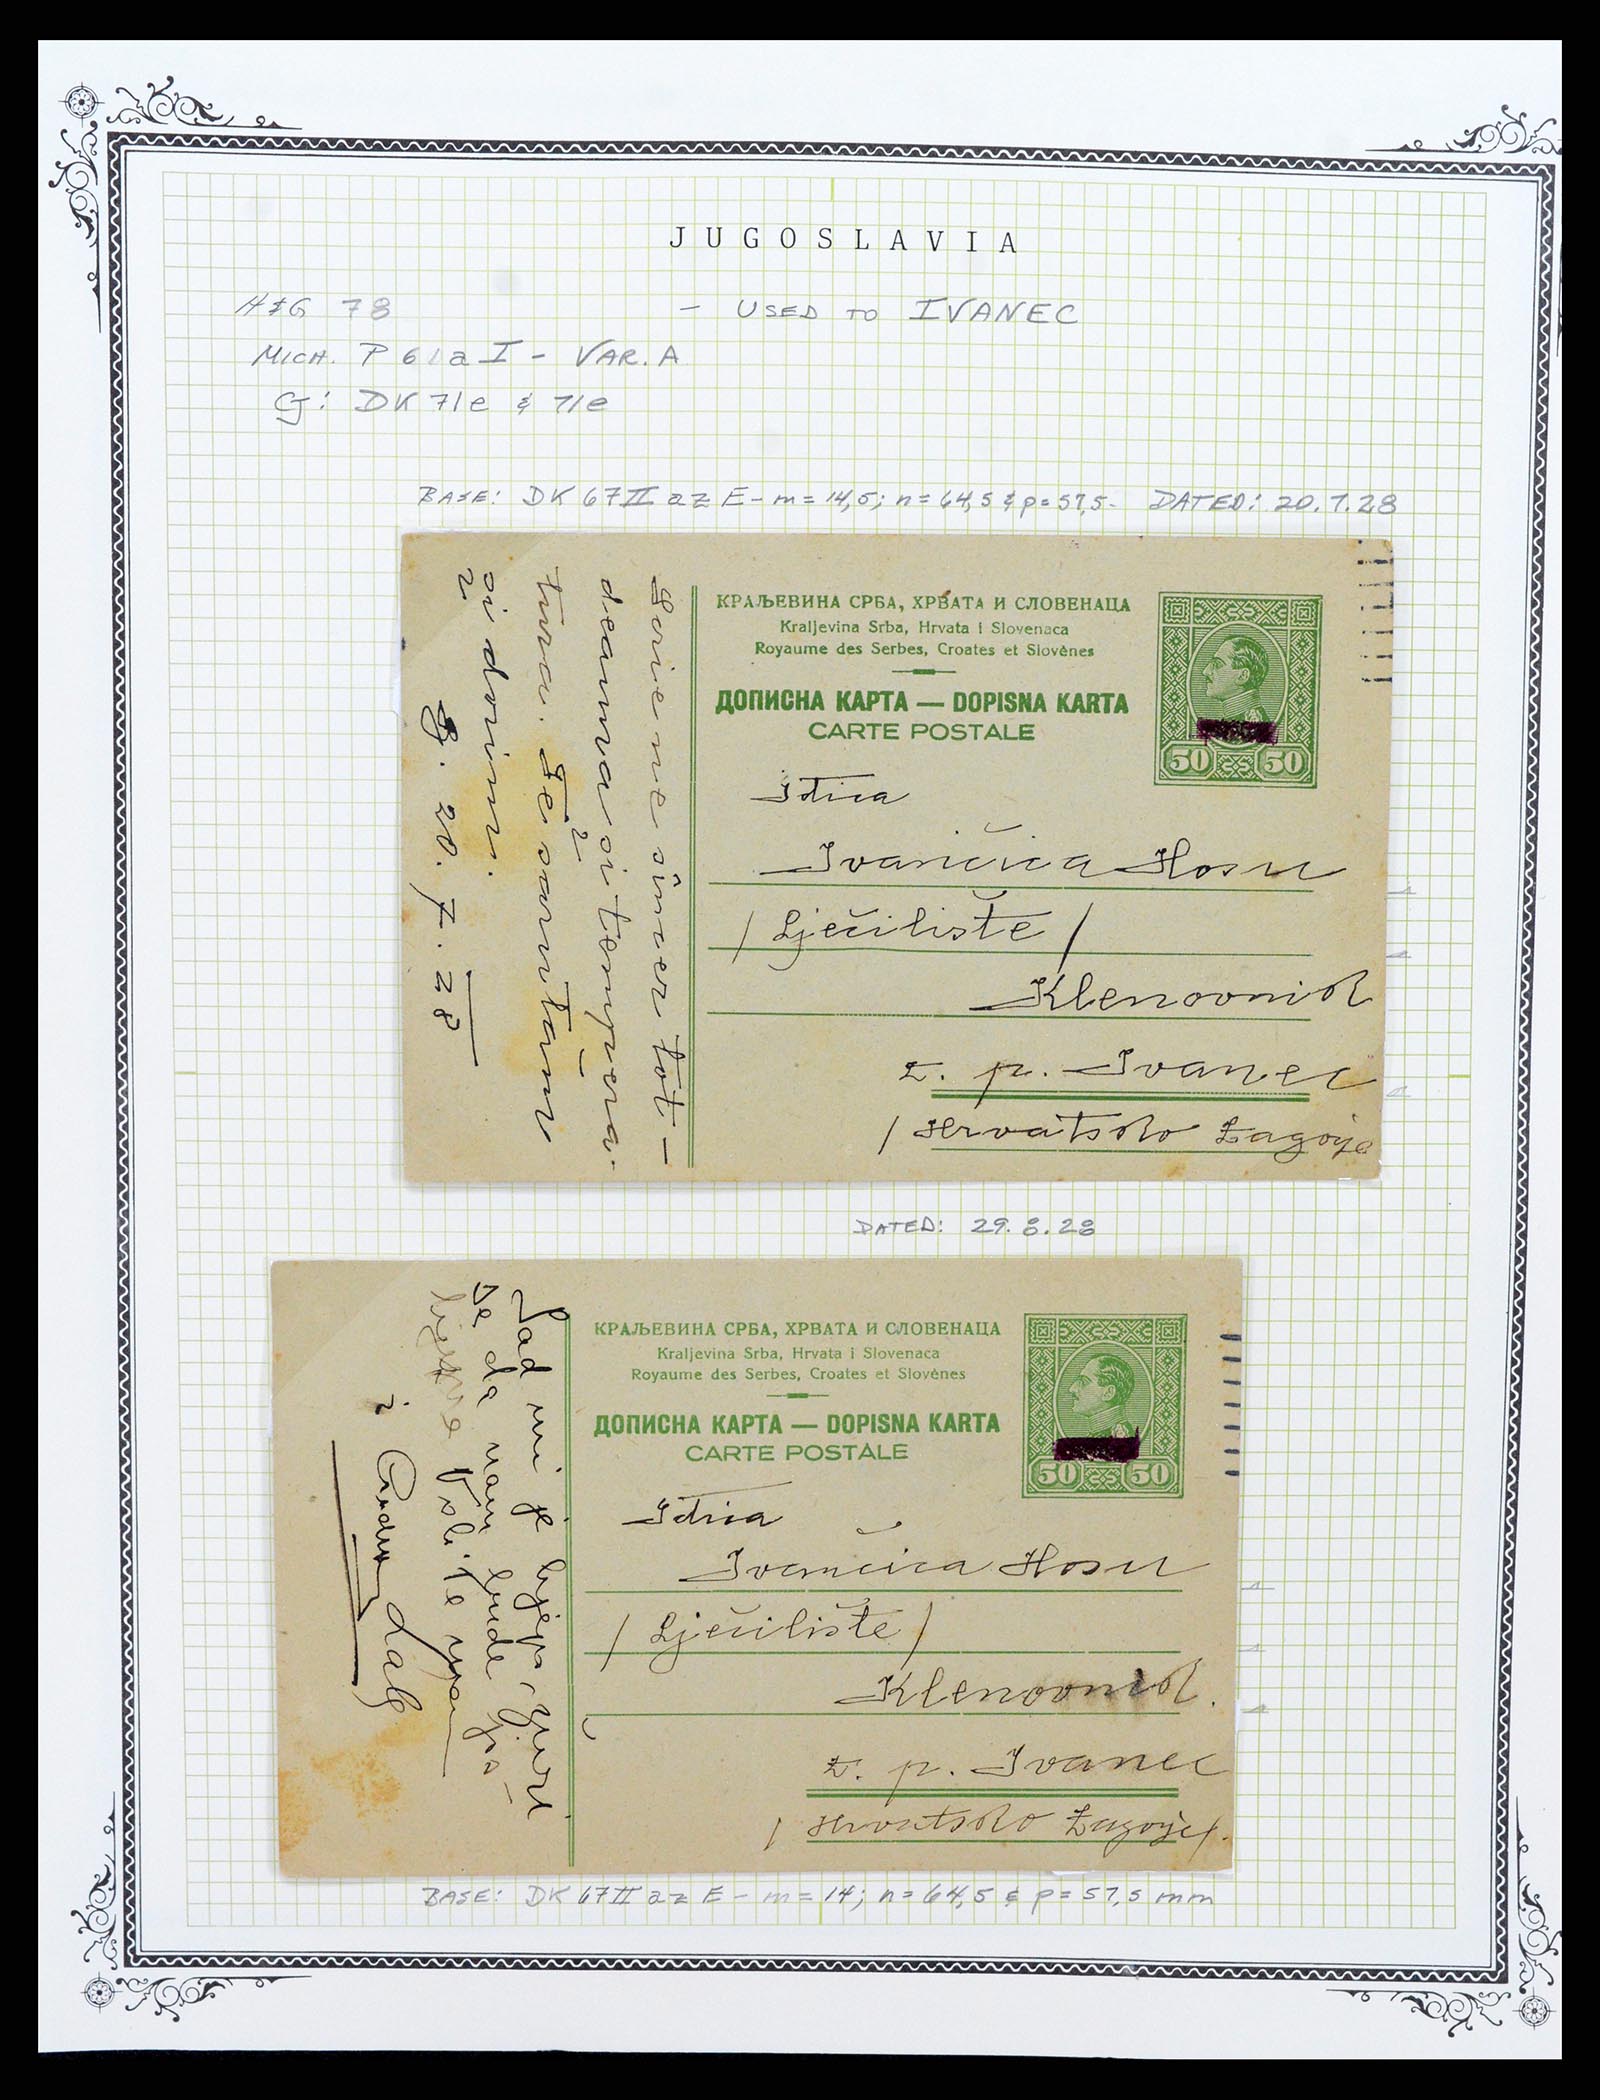 JUGOSLAVIA
H&G 78 - USED TO IVANEC
MICH. P 61a I - VAR. A
CJ: DK 71e & 71e
BASE: DK 67 II a z E - m = 14,5; n = 64,5 & p = 57,5- DATED: 20.7.28
КРАЉЕВИНА СРБА, ХРВАТА И СЛОВЕНАЦА
Kraljevina Srba, Hrvata i Slovenaca
Royaume des Serbes, Croates et Slovènes
ДОПИСНА КАРТА — DOPISNA KARTA
CARTE POSTALE
50 50
Ivančica Hosu
/ Lječilište /
Klenovnik
z. p. Ivanec
/ Hrvatsko Zagorje
si tempera-
20. 7. 28
DATED: 29.8.28
КРАЉЕВИНА СРБА, ХРВАТА И СЛОВЕНАЦА
Kraljevina Srba, Hrvata i Slovenaca
Royaume des Serbes, Croates et Slovènes
ДОПИСНА КАРТА — DOPISNA KARTA
CARTE POSTALE
50 50
Ivančica Hosu
/ Lječilište /
Klenovnik.
z. p. Ivanec
/ Hrvatsko Zagorje /.
Sad mi je
se da vam bude
BASE: DK 67 II a z E - m = 14; n = 64,5 & p = 57,5 mm